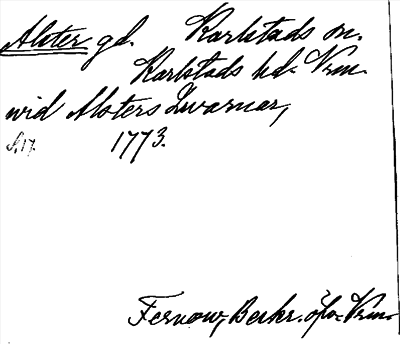 Alster gd. Karlstads sn.
Karlstads hd. Vrm.
wid Alsters Qwarnar,
S. 17. 1773.
Fernow, Beskr. öfv. Vrm.